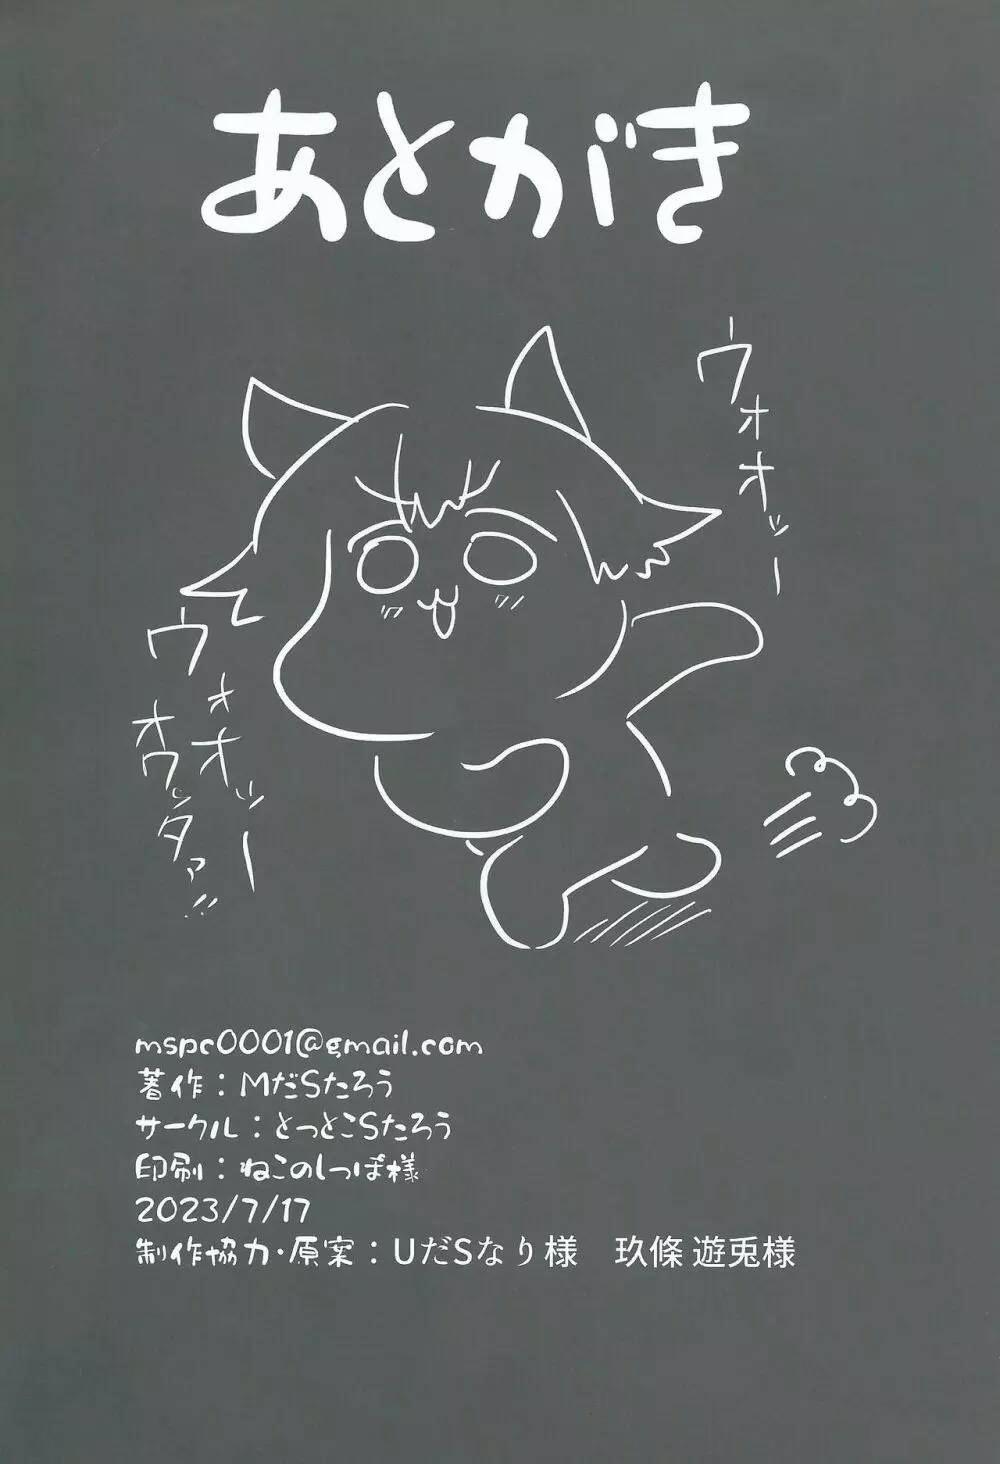 あとがき
ウオオッー
ウォオッー
オワッタァ!!
mspc0001@gmail.com
著作：MだSたろう
サークル：とっとこSたろう
印刷：ねこのしっぽ様
2023/7/17
制作協力・原案：UだSなり様　玖條 遊兎様